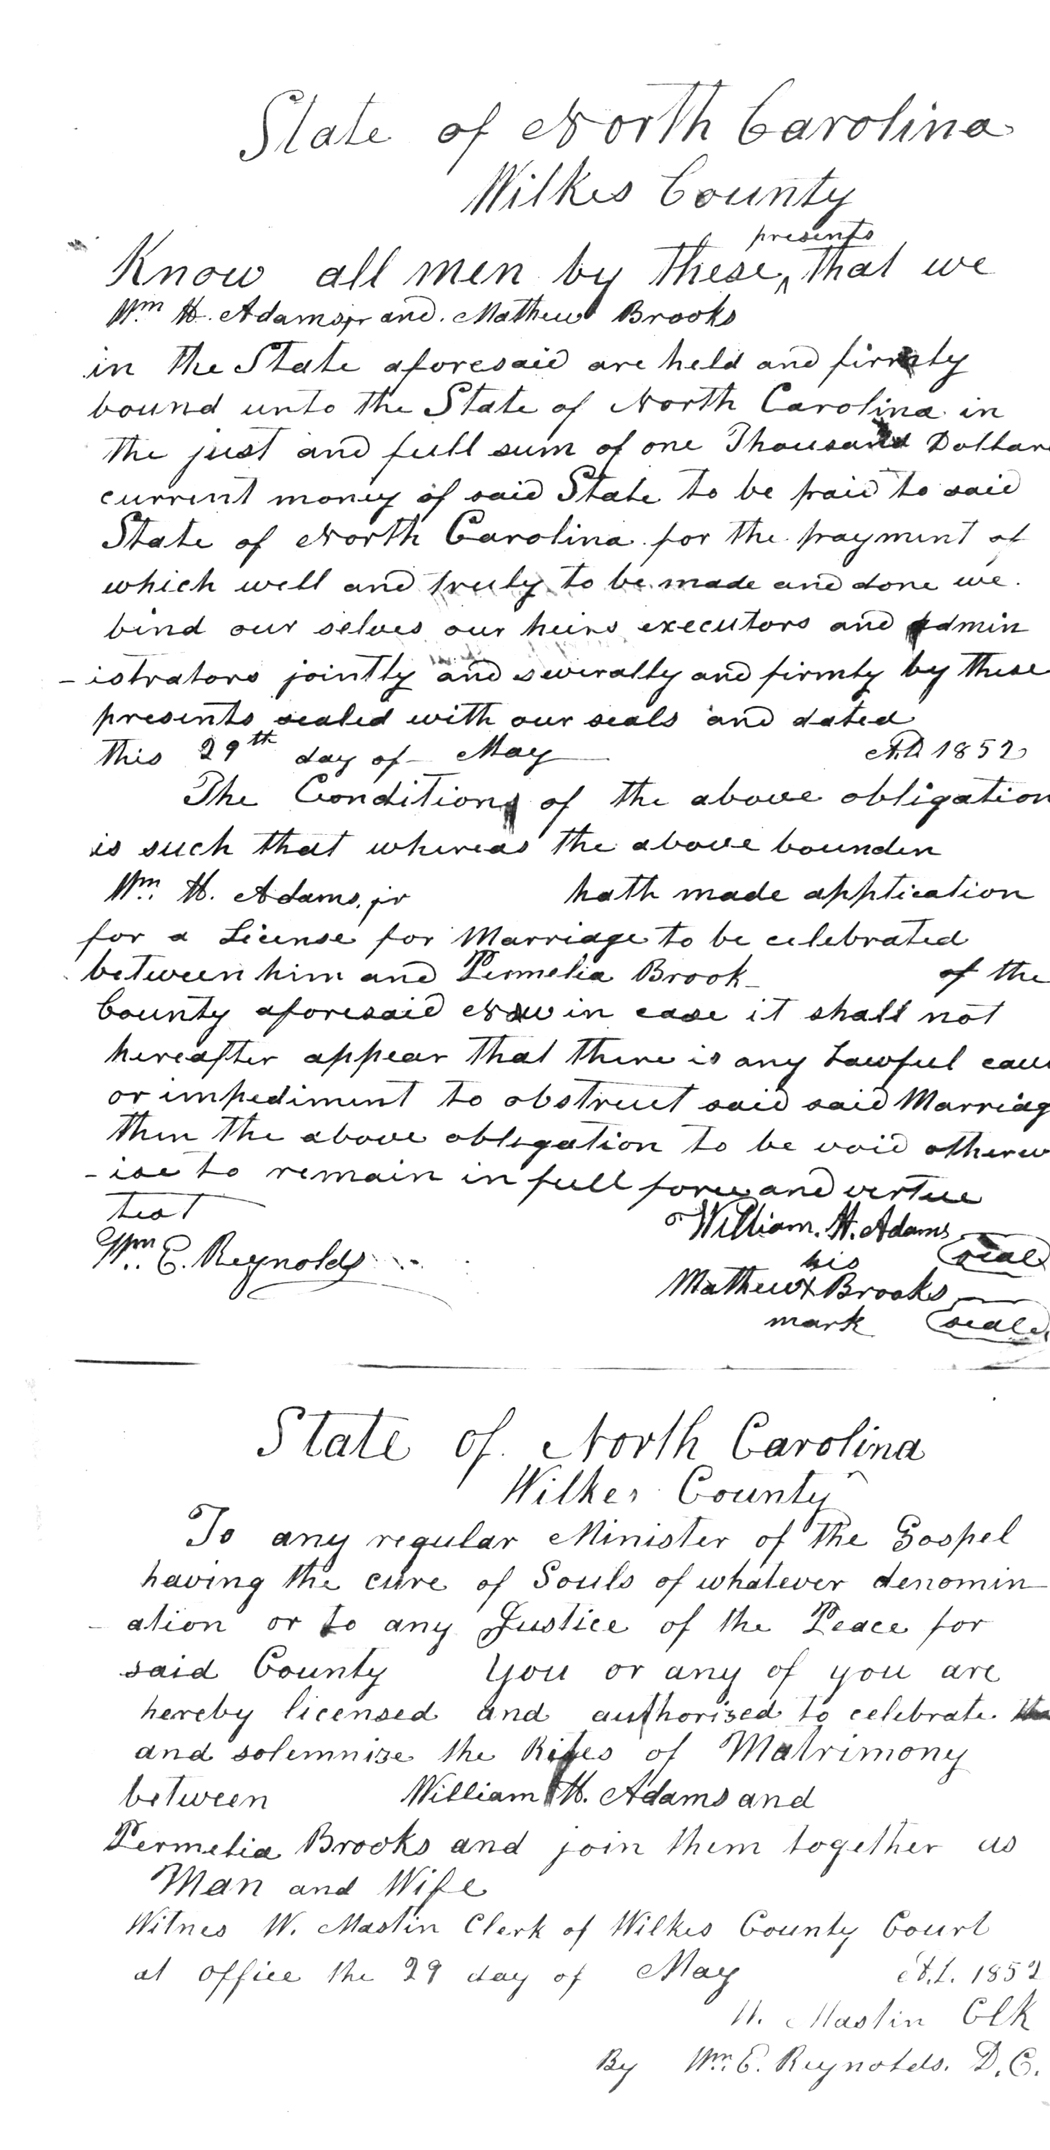 State of North Carolina
Wilkes County
presents
Know all men by these ^ that we
Wm H. Adams, jr and Mathew Brooks
in the State aforesaid are held and firmly
bound unto the State of North Carolina in
the just and full sum of one Thousand Dollars
current money of said State to be paid to said
State of North Carolina for the payment of
which well and truly to be made and done we
bind our selves our heirs executors and admin
-istrators jointly and severally and firmly by these
presents sealed with our seals and dated
this 29th day of May A.D. 1852
The Condition of the above obligation
is such that whereas the above bounden
Wm. H. Adams, jr hath made application
for a License for Marriage to be celebrated
between him and Permelia Brook of the
County aforesaid Now in case it shall not
hereafter appear that there is any Lawful cau
or impediment to obstruct said said Marriag
then the above obligation to be void otherw
-ise to remain in full force and vertue
test
William. H. Adams seal
Wm. E. Reynolds
his
Mathew X Brooks
mark seal
State of North Carolina
Wilkes County
To any regular Minister of the Gospel
having the cure of Souls of whatever denomin
-ation or to any Justice of the Peace for
said County You or any of you are
hereby licensed and authorised to celebrate
and solemnise the Rites of Matrimony
between William H. Adams and
Permelia Brooks and join them together as
Man and Wife
Witnes W. Mastin Clerk of Wilkes County Court
at office the 29 day of May A.D. 1852
W. Mastin Clk
By Wm. E. Reynolds. D.C.